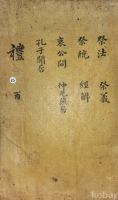 祭法 祭義
祭統 經解
哀公問 仲尼燕居
孔子閒居
禮
kobay